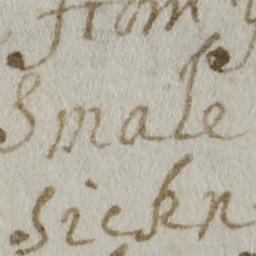 from y
Smale
sickn